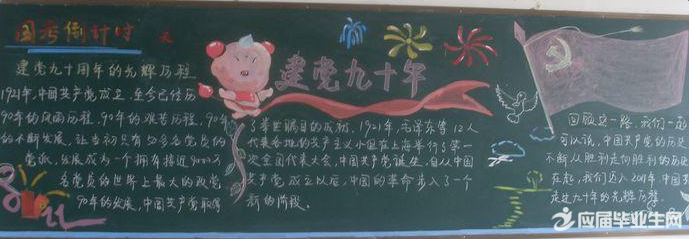 国考倒计时 天
建党九十年
建党九十周年的光辉历程
1921年,中国共产党成立,至今已经历
90年的风雨历程,90年的艰苦历程,90年
的不断发展,让当初只有50多名党员的
党派,发展成为一个拥有接近8000万
名党员的世界上最大的政党。
90年的发展,中国共产党取得
了举世瞩目的成就。1921年,毛泽东等12人
代表各地的共产主义小组在上海举行了第一
次全国代表大会,中国共产党诞生,自从中国
共产党成立以后,中国的革命步入了一个
新的阶段。
回顾这一路,我们一
可以说,中国共产党的历史
不断从胜利走向胜利的历史
在起,我们迈入2011年,中国共
走过九十年的光辉历程
应届毕业生网